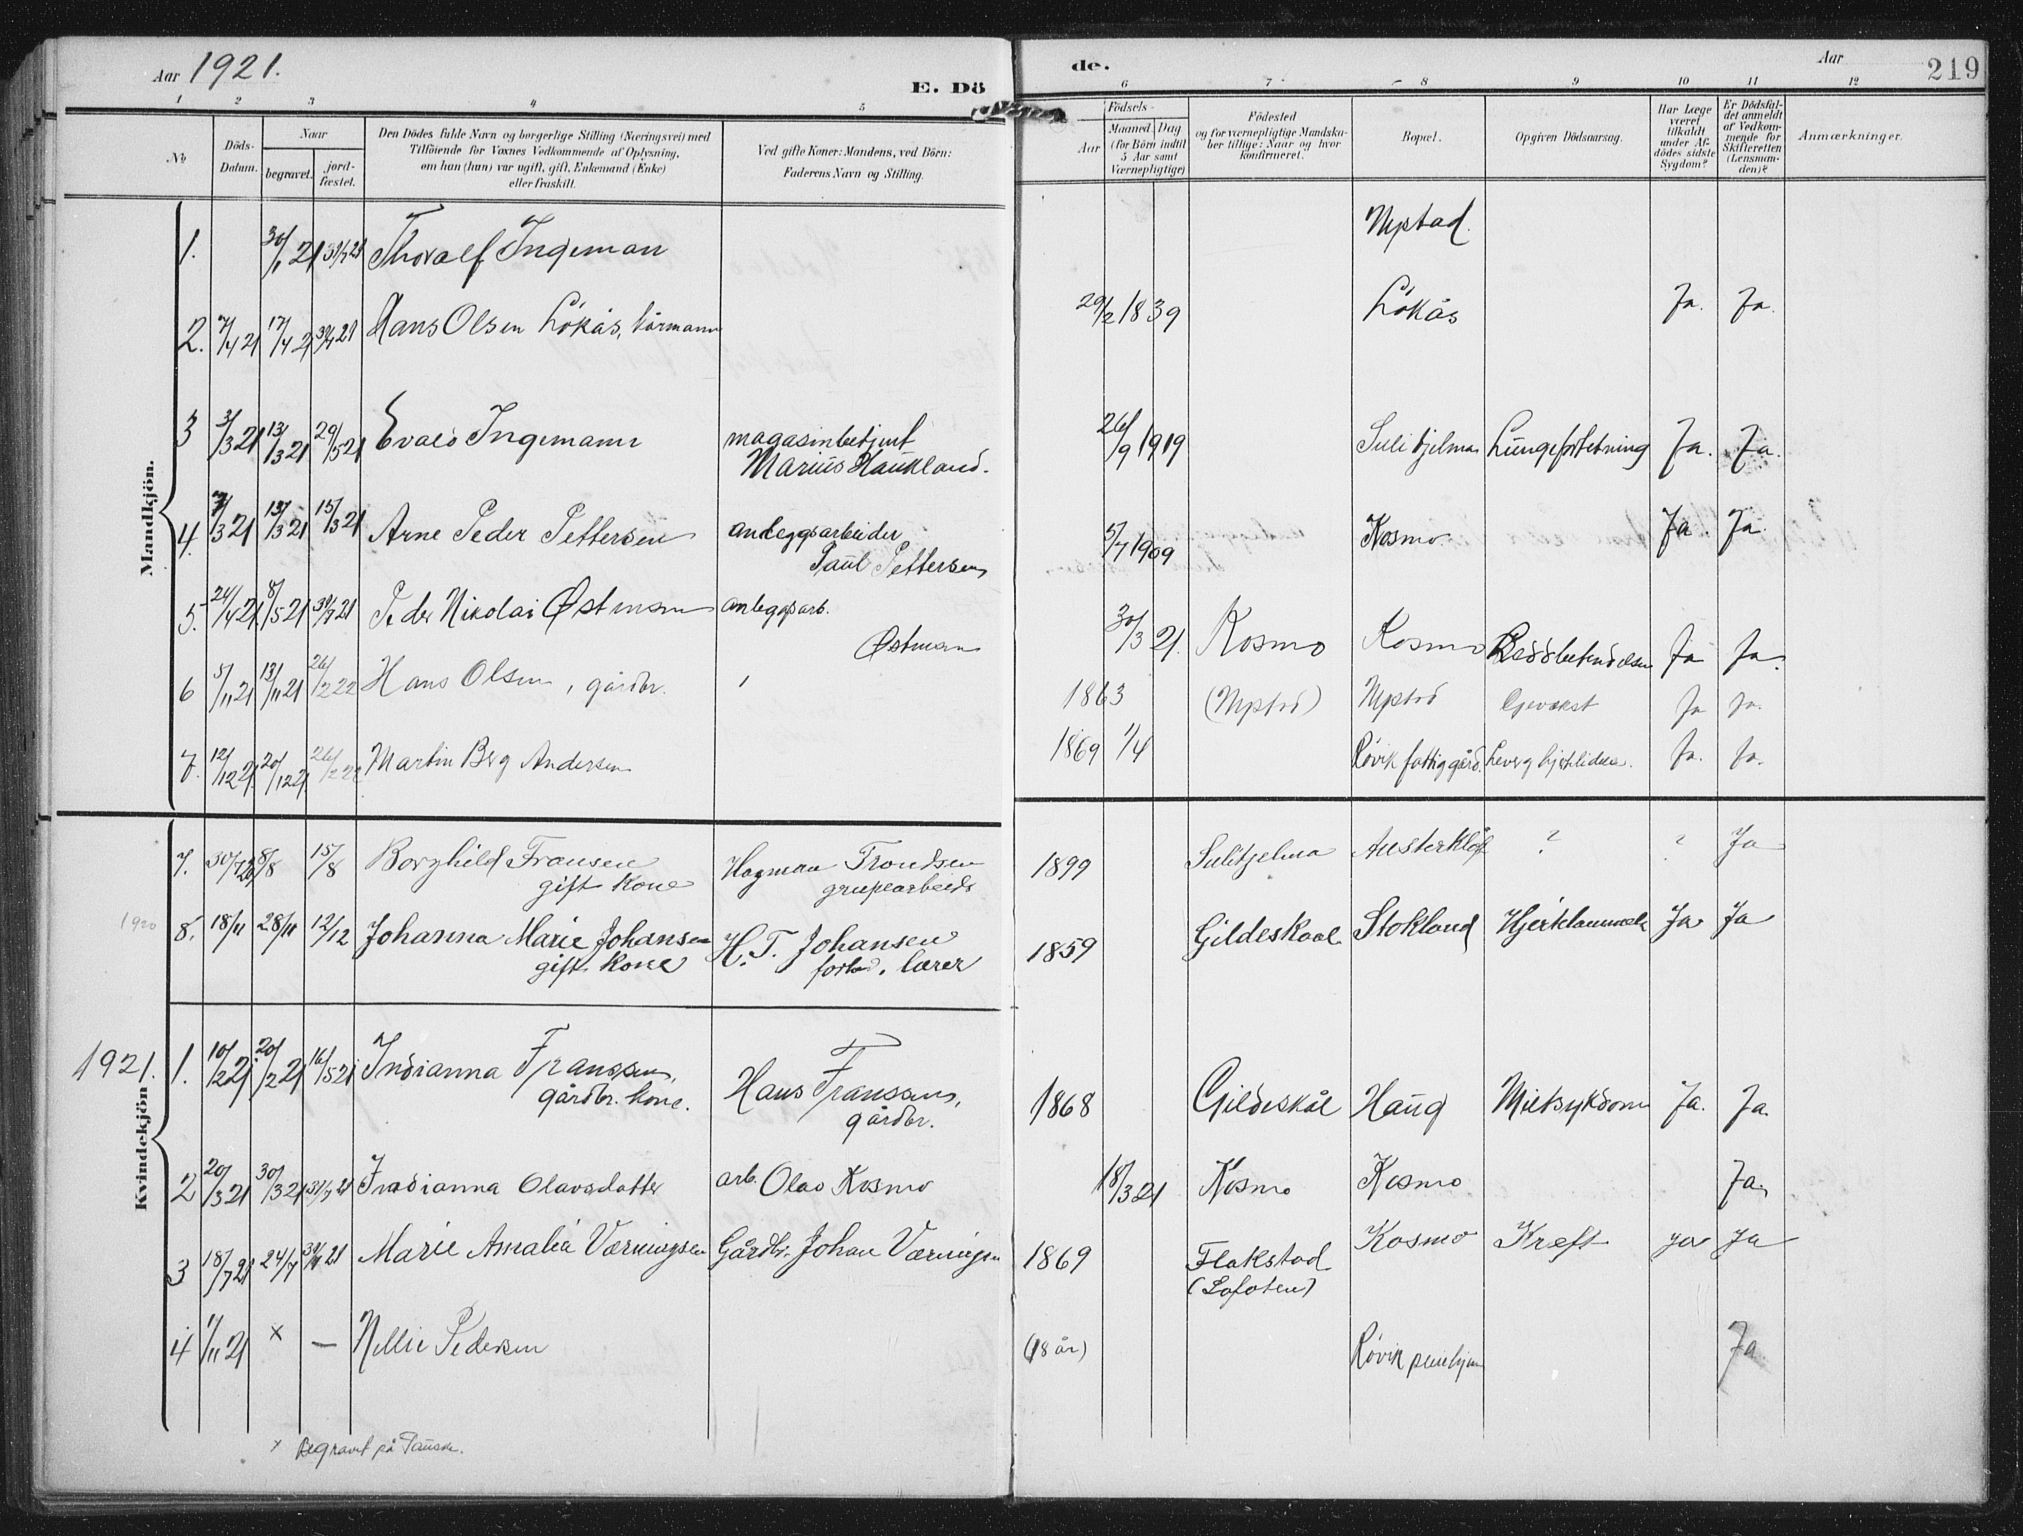 Aar 1921.
E. Döde.
Aar
219
1 2 3 4 5 6 7 8 9 10 11 12
No
Döds-Datum.
Naar
begravet.
jord-fæstet.
Den Dödes fulde Navn og borgerlige Stilling (Næringsvei) med
Tilföiende for Voxnes Vedkommende af Oplysning,
om han (hun) var ugift, gift, Enkemand (Enke)
eller fraskilt.
Ved gifte Koner: Mandens, ved Börn:
Faderens Navn og Stilling.
Födsels-
Aar
Maaned. Dag
(for Börn indtil
5 Aar samt
Værnepligtige)
Födested
og for værnepligtige Mandska-
ber tillige: Naar og hvor
konfirmeret.
Bopæl.
Opgiven Dödsaarsag.
Har Læge
været
tilkaldt
under Af-
dödes sidste
Sygdom?
Er Dödsfal-
det anmeldt
af Vedkom-
mende for
Skifteretten
(Lensman-
den)?
Anmærkninger.
Mandkjön.
1. 30/1 21 Thoralf Ingeman
2. 7/4 21 17/4 2 Hans Olsen Lökås, kårmann 29/2 1839 Lökås Ja. Ja.
3 3/3 21 13/3 21 29/5 21 Evald Ingemann magasinbetjent
Marius Haukland. 26/9 1919 Lungefortetning Ja. Ja.
4. 13/3 21 15/3 21 Arne Peder Pettersen anleggsarbeider
Paul Pettersen 5/7 1909 Kosmo. Ja. Ja.
5. 24/4 21. 8/5 21 Peder Nikolai Østman anleggsarb.
Østman 30/3 21. Kosmo Kosmo Ja Ja.
6 5/11 21 13/11 21 26/2 22 Hans Olsen, gårdbr. 1863 Ja Ja.
7. 12/12 21. 20/12 21. 26/2 22 Martin Berg Andersen 1869 1/4 Røvik fattiggård. Ja. Ja.
Kvindekjön
7. 30/7 20 8/8 15/8 Borghild Fransen
gift Kone Hagman Trondsen
1899 Sulitjelma ? ? Ja
1920 8. 18/11 28/11 12/12 Johanna Marie Johansen
gift Kone H. T. Johansen
lærer 1859 Gildeskaal Stokland Ja Ja
1921. 1. 10/2 21. 20/2 21 16/5 21 Indianna Franssen,
gårdbr. kone. Hans Franssen,
gårdbr. 1868 Gildeskål Haug Miltsykdom Ja. Ja.
2 20/3 21 30/3 21 Indianna Olavsdatter arb. Olav Kosmo 18/3 21 Kosmo Kosmo Ja.
3 18/7 21 24/7 Marie Amalia Værningsen Gårdbr. Johan Værningsen 1869 Flakstad
(Lofoten) Kosmo Kræft ja Ja
4 1/11 21 x — Nellie Pedersen (18 år) Røvik pleiehjem Ja
x Begravet på Fauske.